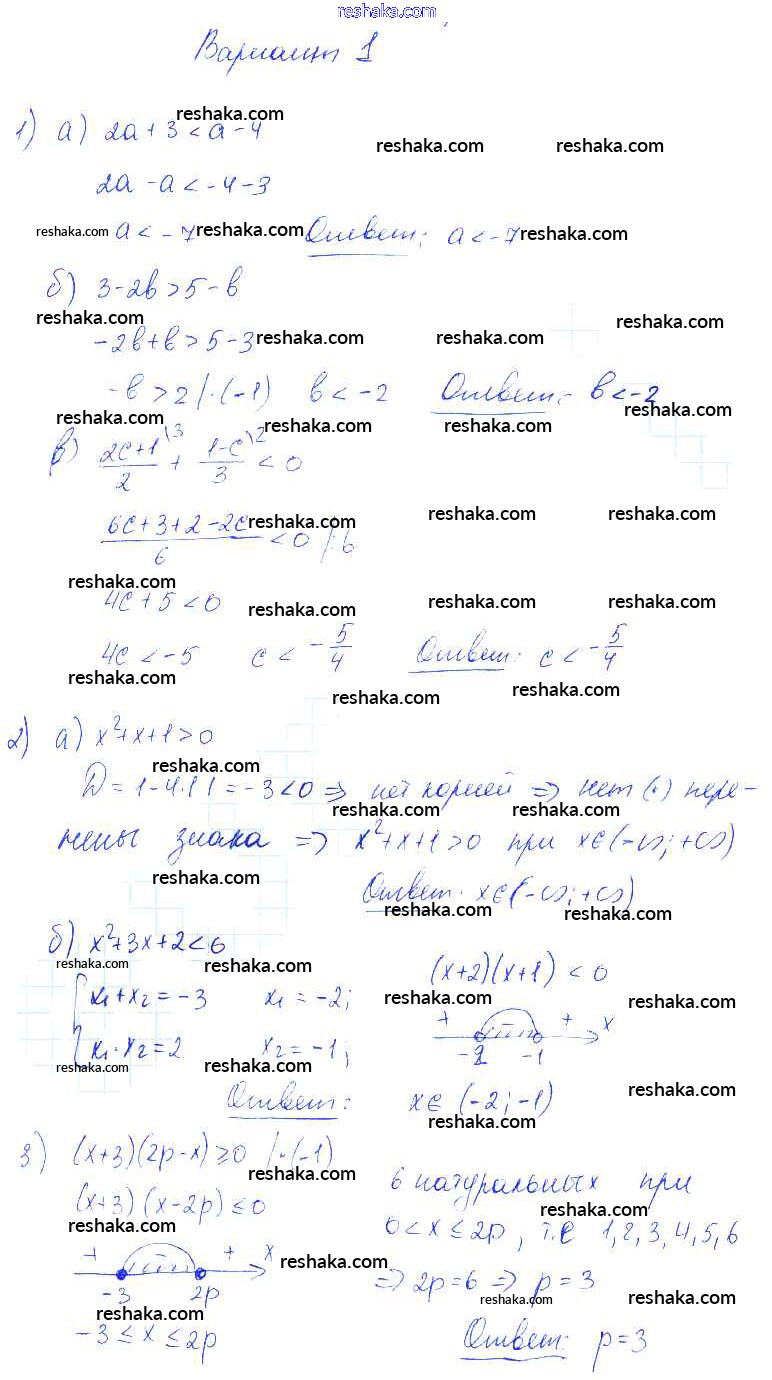 reshaka.com
Вариант 1
reshaka.com
1) а) 2a + 3 < a - 4
reshaka.com reshaka.com
2a - a < -4 - 3
reshaka.com a < -7 reshaka.com Ответ: a < -7 reshaka.com
б) 3 - 2b > 5 - b
reshaka.com reshaka.com
-2b + b > 5 - 3 reshaka.com reshaka.com
-b > 2 | · (-1) b < -2 Ответ: b < -2
reshaka.com reshaka.com reshaka.com reshaka.com
в) \frac{2c+1}{2}^{\3} + \frac{1-c}{3}^{\2} < 0
\frac{6c+3+2-2c}{6} < 0 | · 6
reshaka.com reshaka.com reshaka.com
reshaka.com
4c + 5 < 0
reshaka.com reshaka.com reshaka.com
4c < -5 c < -\frac{5}{4} Ответ: c < -\frac{5}{4}
reshaka.com reshaka.com reshaka.com
2) а) x² + x + 1 > 0
reshaka.com
D = 1 - 4·1·1 = -3 < 0 ⇒ нет корней ⇒ нет (·) пере-
reshaka.com reshaka.com
мены знака ⇒ x² + x + 1 > 0 при x ∈ (-∞; +∞)
reshaka.com
Ответ: x ∈ (-∞; +∞)
reshaka.com reshaka.com
б) x² + 3x + 2 < 6
reshaka.com reshaka.com
(x+2)(x+1) < 0
x₁ + x₂ = -3 x₁ = -2; reshaka.com reshaka.com
+ + x
-2 -1
x₁ · x₂ = 2 x₂ = -1;
reshaka.com reshaka.com reshaka.com
Ответ: x ∈ (-2; -1)
reshaka.com
3) (x+3)(2p-x) ≥ 0 | · (-1)
reshaka.com
(x+3)(x-2p) ≤ 0
reshaka.com
+ + x
reshaka.com
-3 2p
reshaka.com
-3 ≤ x ≤ 2p
6 натуральных при
reshaka.com
0 < x ≤ 2p, т.е 1, 2, 3, 4, 5, 6
⇒ 2p = 6 ⇒ p = 3
reshaka.com reshaka.com
Ответ: p = 3